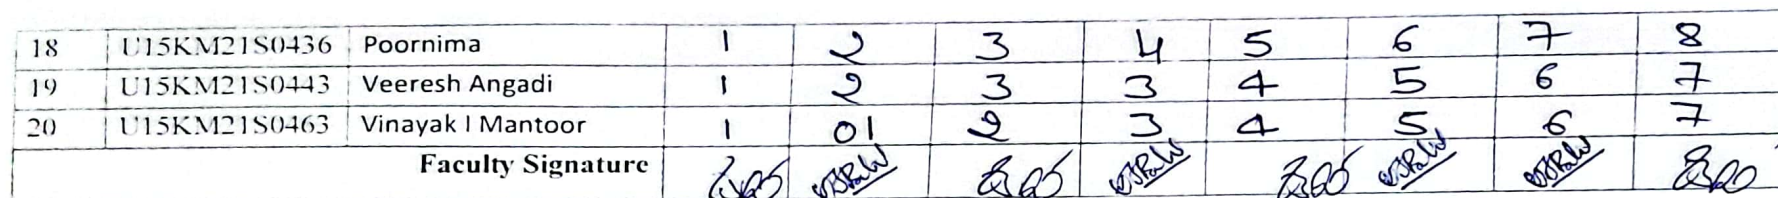 18 U15KM21S0436 Poornima 1 2 3 4 5 6 7 8
19 U15KM21S0443 Veeresh Angadi 1 2 3 3 4 5 6 7
20 U15KM21S0463 Vinayak I Mantoor 1 01 2 3 4 5 6 7
Faculty Signature